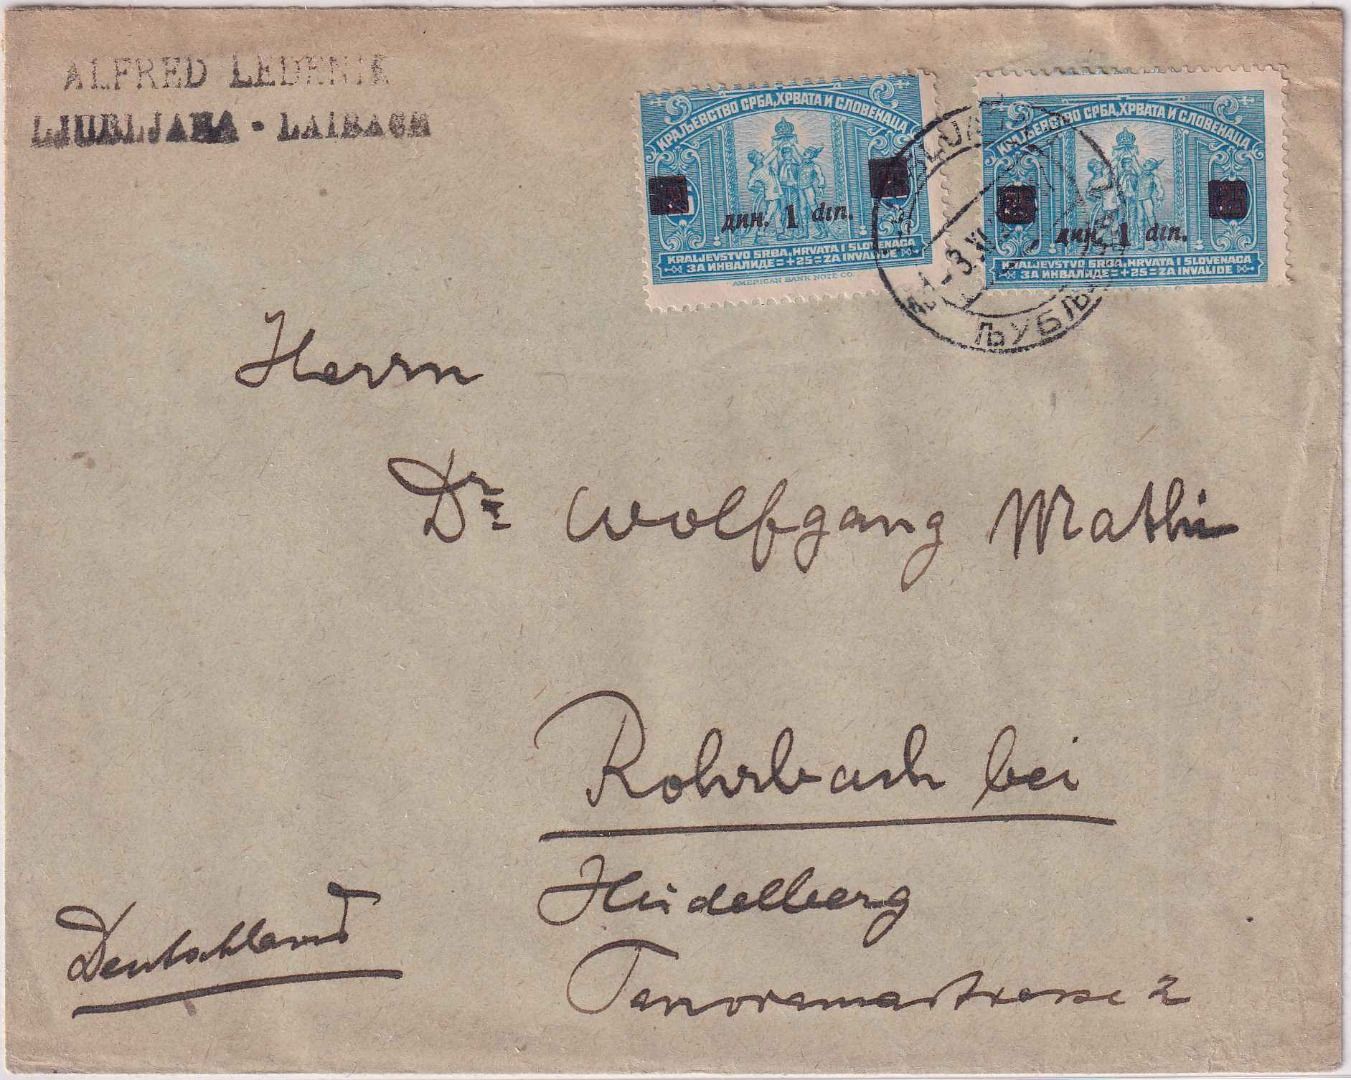 ALFRED LEDENIK
LJUBLJANA - LAIBACH
КРАЉЕВСТВО СРБА, ХРВАТА И СЛОВЕНАЦА
дин. 1 din.
KRALJEVSTVO SRBA, HRVATA I SLOVENACA
ЗА ИНВАЛИДЕ = +25 = ZA INVALIDE
AMERICAN BANK NOTE CO.
КРАЉЕВСТВО СРБА, ХРВАТА И СЛОВЕНАЦА
дин. 1 din.
KRALJEVSTVO SRBA, HRVATA I SLOVENACA
ЗА ИНВАЛИДЕ = +25 = ZA INVALIDE
Herrn
Dr. Wolfgang
Rohrbach bei
Heidelberg
Panoramastrasse 2
Deutschland